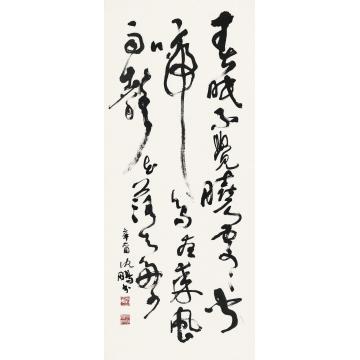 春眠不覺曉處〻聞
啼鸟夜来風
雨聲花落知多少
辛酉沈鵬书